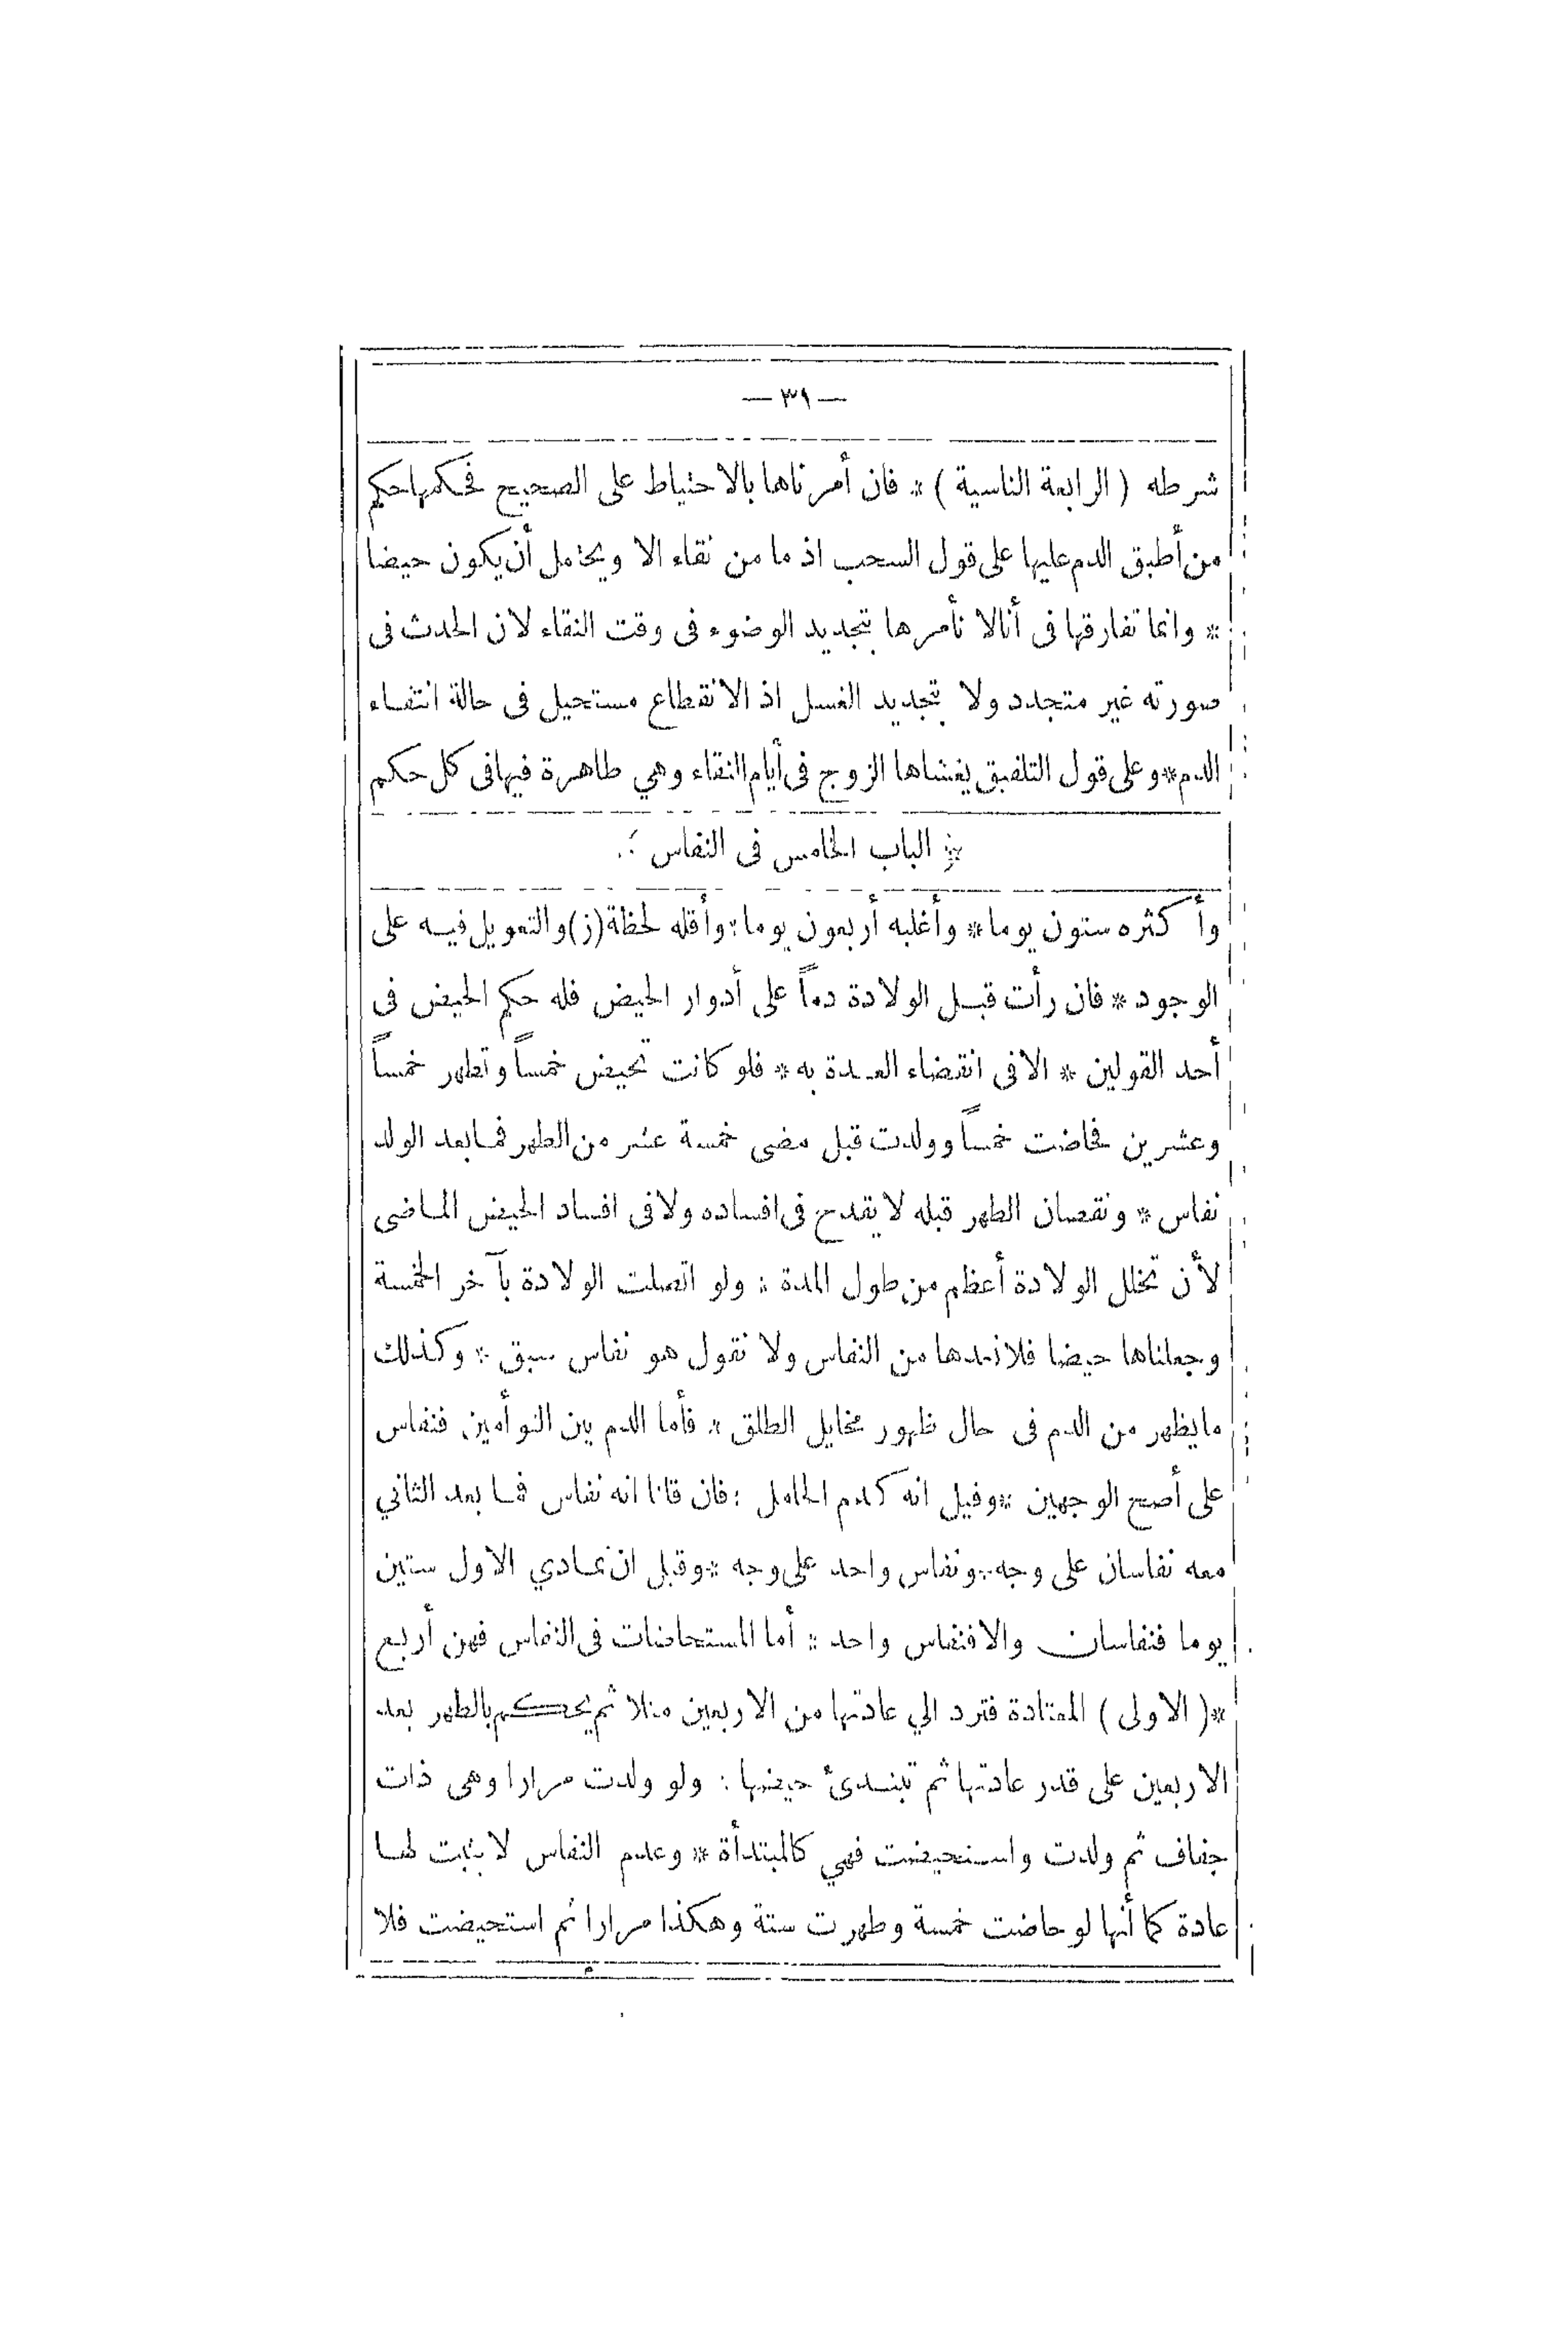 — ٣١ —
شرطه ( الرابعة الناسية ) * فان أمرناها بالاحتياط على الصحيح فحكمها حكم
من أطبق الدم عليها على قول السحب اذ ما من نقاء الا ويحتمل أن يكون حيضا
* وانما تفارقها فى أنالا نأمرها بتجديد الوضوء فى وقت النقاء لان الحدث فى
صورته غير متجدد ولا بتجديد الغسل اذ الانقطاع مستحيل فى حالة انتفاء
الدم * وعلى قول التلفيق يغشاها الزوج فى أيام النقاء وهي طاهرة فيها فى كل حكم
* الباب الخامس فى النفاس *
وأكثره ستون يوما * وأغلبه أربعون يوما * وأقله لحظة (ز) والتعويل فيه على
الوجود * فان رأت قبل الولادة دماً على أدوار الحيض فله حكم الحيض فى
أحد القولين * الا فى انقضاء العدة به * فلو كانت تحيض خمساً وتطهر خمساً
وعشرين فحاضت خمساً وولدت قبل مضى خمسة عشر من الطهر فما بعد الولد
نفاس * ونقصان الطهر قبله لا يقدح فى افساده ولا فى افساد الحيض الماضى
لأن تخلل الولادة أعظم من طول المدة * ولو اتصلت الولادة بآخر الخمسة
وجعلناها حيضا فلا نعدها من النفاس ولا نقول هو نفاس سبق * وكذلك
ما يظهر من الدم فى حال ظهور مخايل الطلق * فأما الدم بين التوأمين فنفاس
على أصح الوجهين * وقيل انه كدم الحامل * فان قلنا انه نفاس فما بعد الثاني
معه نفاسان على وجه * ونفاس واحد على وجه * وقيل ان تمادي الاول ستين
يوما فنفاسان والا فنفاس واحد * أما المستحاضات فى النفاس فهن أربع
* ( الاولى ) المعتادة فترد الي عادتها من الاربعين مثلا ثم يحكم بالطهر بعد
الاربعين على قدر عادتها ثم تبتدئ حيضها * ولو ولدت مرارا وهى ذات
جفاف ثم ولدت واستحيضت فهي كالمبتدأة * وعدم النفاس لا يثبت لها
عادة كما أنها لو حاضت خمسة وطهرت ستة وهكذا مرارا ثم استحيضت فلا